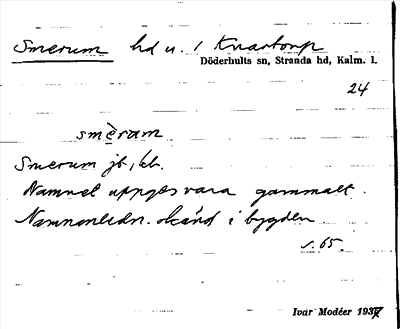 Smerum hd u. / Kvastorp
Döderhults sn, Stranda hd, Kalm. l.
24
smèram
Smerum jb, kb.
Namnet uppges vara gammalt.
Namnanledn. okänd i bygden
s. 65.
Ivar Modéer 1937